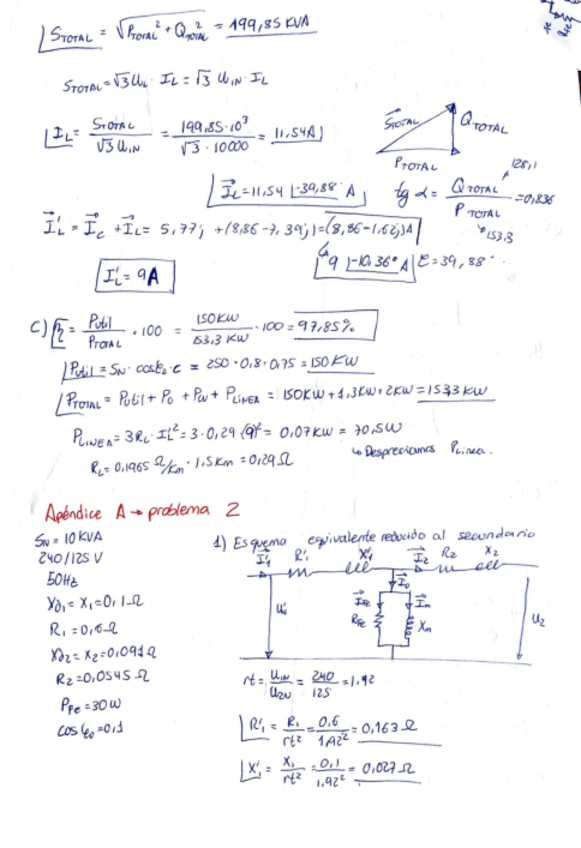 S_TOTAL = √(P_TOTAL² + Q_TOTAL²) = 199,85 KVA
S_TOTAL = √3 U_L · I_L = √3 U_1N · I_L
I_L = S_TOTAL / (√3 U_1N) = 199,85·10³ / (√3 · 10000) = 11,54A
S_TOTAL
Q_TOTAL
P_TOTAL
I_L = 11,54 |-39,88° A
tg α = Q_TOTAL / P_TOTAL = 0,836
128,1
153,3
I'_L = I_c + I_L = 5,77j + (8,86-7,39j) = (8,86-1,62j)A
9 |-10,36° A
φ = 39,88°
I'_L = 9A
C) η = Putil / P_TOTAL · 100 = 150KW / 153,3 KW · 100 = 97,85%
Putil = S_N · cosφ_2 · c = 250 · 0,8 · 0,75 = 150 KW
P_TOTAL = Putil + P_0 + Pcu + P_LINEA = 150KW + 1,3KW + 2KW = 153,3 KW
P_LINEA = 3R_L · I_L² = 3 · 0,29 (9)² = 0,07KW = 70,5W
↳ Despreciamos P_Linea.
R_L = 0,1965 Ω/Km · 1,5Km = 0,29Ω
Apéndice A → problema 2
S_N = 10 KVA
240/125 V
50Hz
X_d1 = X_1 = 0,1 Ω
R_1 = 0,6 Ω
X_d2 = X_2 = 0,091 Ω
R_2 = 0,0545 Ω
P_Fe = 30W
cos φ_0 = 0,1
1) Esquema equivalente reducido al secundario
I'_1 R'_1 X'_1 I_2 R_2 X_2
I_0
I_Fe I_m
R_Fe X_m
U'_1 U_2
rt = U_1N / U_2N = 240 / 125 = 1,92
R'_1 = R_1 / rt² = 0,6 / 1,92² = 0,163 Ω
X'_1 = X_1 / rt² = 0,1 / 1,92² = 0,027 Ω